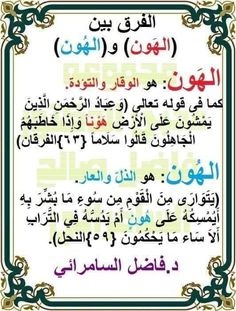 الفرق بين
(الهَون) و(الهُون)
الهَون: هو الوقار والتؤدة.
كما في قوله تعالى (وَعِبَادُ الرَّحْمَنِ الَّذِينَ
يَمْشُونَ عَلَى الْأَرْضِ هَوْنًا وَإِذَا خَاطَبَهُمُ
الْجَاهِلُونَ قَالُوا سَلَامًا {٦٣}الفرقان)
الهُون: هو الذلّ والعار.
(يَتَوَارَى مِنَ الْقَوْمِ مِن سُوءِ مَا بُشِّرَ بِهِ
أَيُمْسِكُهُ عَلَى هُونٍ أَمْ يَدُسُّهُ فِي التُّرَابِ
أَلَا سَاءَ مَا يَحْكُمُونَ {٥٩}النحل).
د.فاضل السامرائي